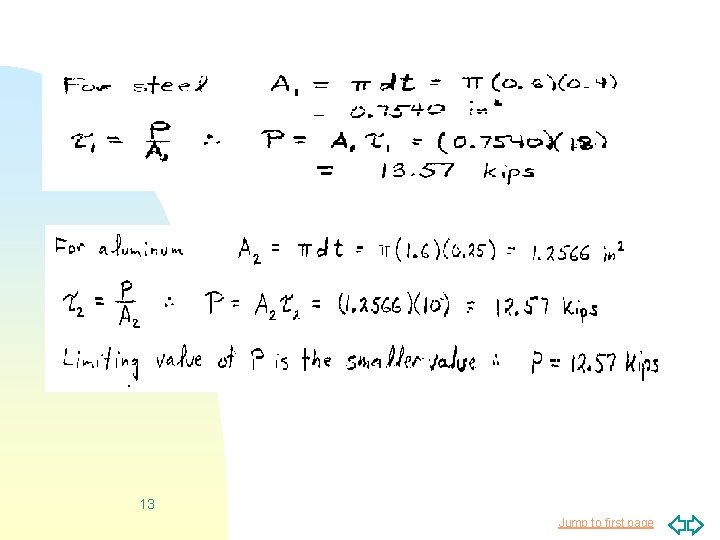 For steel A₁ = πdt = π(0.6)(0.4)
= 0.7540 in²
τ₁ = P/A₁ ∴ P = A₁τ₁ = (0.7540)(18)
= 13.57 kips
For aluminum A₂ = πdt = π(1.6)(0.25) = 1.2566 in²
τ₂ = P/A₂ ∴ P = A₂τ₂ = (1.2566)(10) = 12.57 kips
Limiting value of P is the smaller value ∴ P = 12.57 Kips
13
Jump to first page